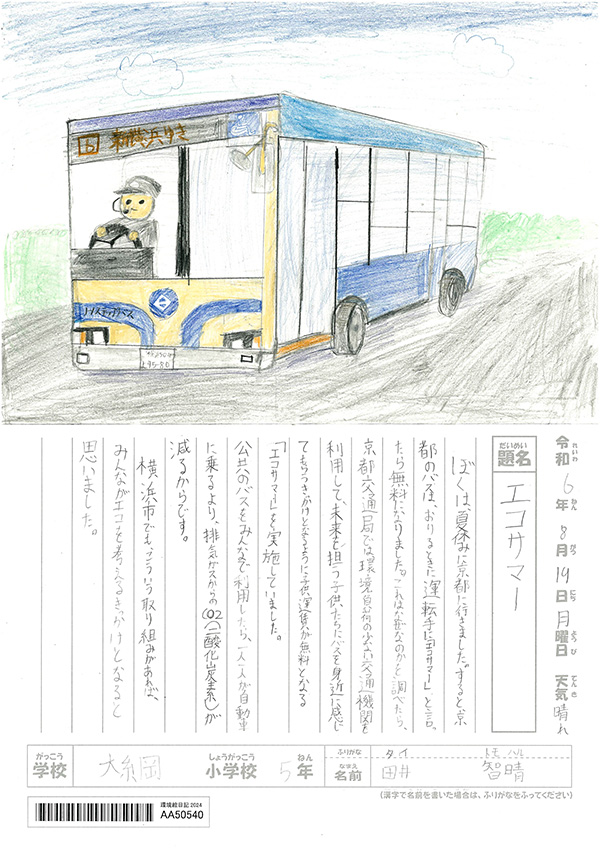 6 新横浜ゆき
ノンステップバス
95-80
令和6年8月19日月曜日 天気 晴れ
れいわ ねん がつ にち ようび てんき
だいめい
題名 エコサマー
ぼくは、夏休みに京都に行きました。すると、京
都のバスは、おりるときに運転手に「エコサマー」と言っ
たら無料になりました。これはな何なのかと調べたら、
京都交通局では環境負荷の少ない交通機関を
利用して、未来を担う子供たちにバスを身近に感じ
てもらうきっかけとなるように子供運賃が無料となる
「エコサマー」を実施していました。
公共のバスをみんなで利用したら、一人一人が自動車
に乗るより、排気ガスからのCO2(二酸化炭素)が
減るからです。
横浜市でもこういう取り組みがあれば、
みんながエコを考えるきっかけとなると
思いました。
がっこう しょうがっこう ねん ふりがな タイ トモハル
学校 大綱 小学校 5年 なまえ 名前 田井 智晴
(漢字で名前を書いた場合は、ふりがなをふってください)
環境絵日記2024
AA50540